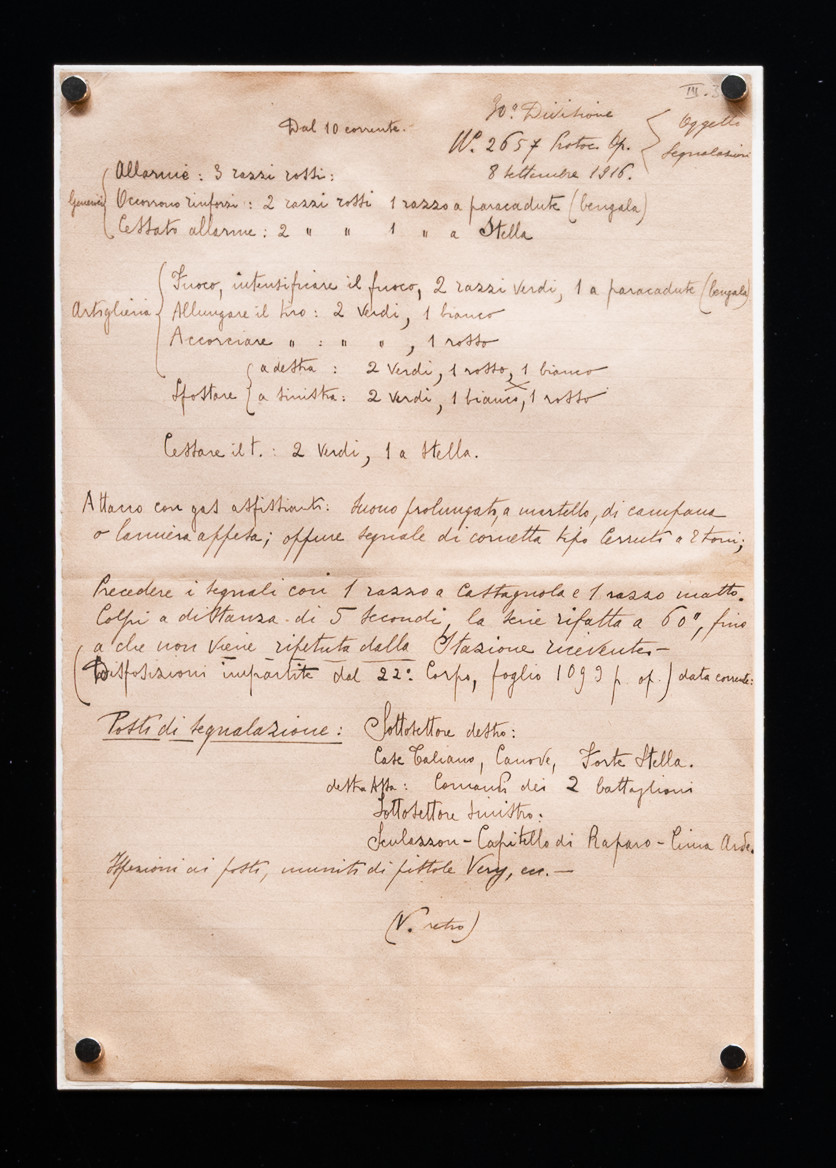 III.3
30ª Divisione
Dal 10 corrente.
Nº. 2657 Protoc. Op.
Oggetto
Segnalazioni
8 settembre 1916.
Allarme : 3 razzi rossi :
Generici
Occorrono rinforzi : 2 razzi rossi 1 razzo a paracadute (bengala)
Cessato allarme : 2 " " 1 " a Stella
Fuoco, intensificare il fuoco, 2 razzi verdi, 1 a paracadute (bengala)
Artiglieria
Allungare il tiro : 2 verdi, 1 bianco
Accorciare " : " " , 1 rosso
a destra : 2 verdi, 1 rosso, 1 bianco
Spostare
a sinistra : 2 verdi, 1 bianco, 1 rosso
Cessare il t. : 2 verdi, 1 a stella.
Attacco con gas asfissianti : suono prolungato, a martello, di campana
o lamiera appesa; oppure segnale di cornetta tipo Cerruti a 2 toni;
Precedere i segnali con 1 razzo a castagnola e 1 razzo matto.
Colpi a distanza di 5 secondi, la serie rifatta a 60", fino
a che non viene ripetuta dalla Stazione ricevente -
(Disposizioni impartite dal 22º Corpo, foglio 1099 p. op.) data corrente :
Posti di segnalazione : Sottosettore destro :
Case Caliano, Canove, Forte Stella.
destra Assa : Comandi dei 2 battaglioni
Sottosettore sinistro :
Sculazzon - Capitello di Raparo - Cima Arde.
Ispezioni ai posti, muniti di pistole Very, ecc. -
(V. retro)